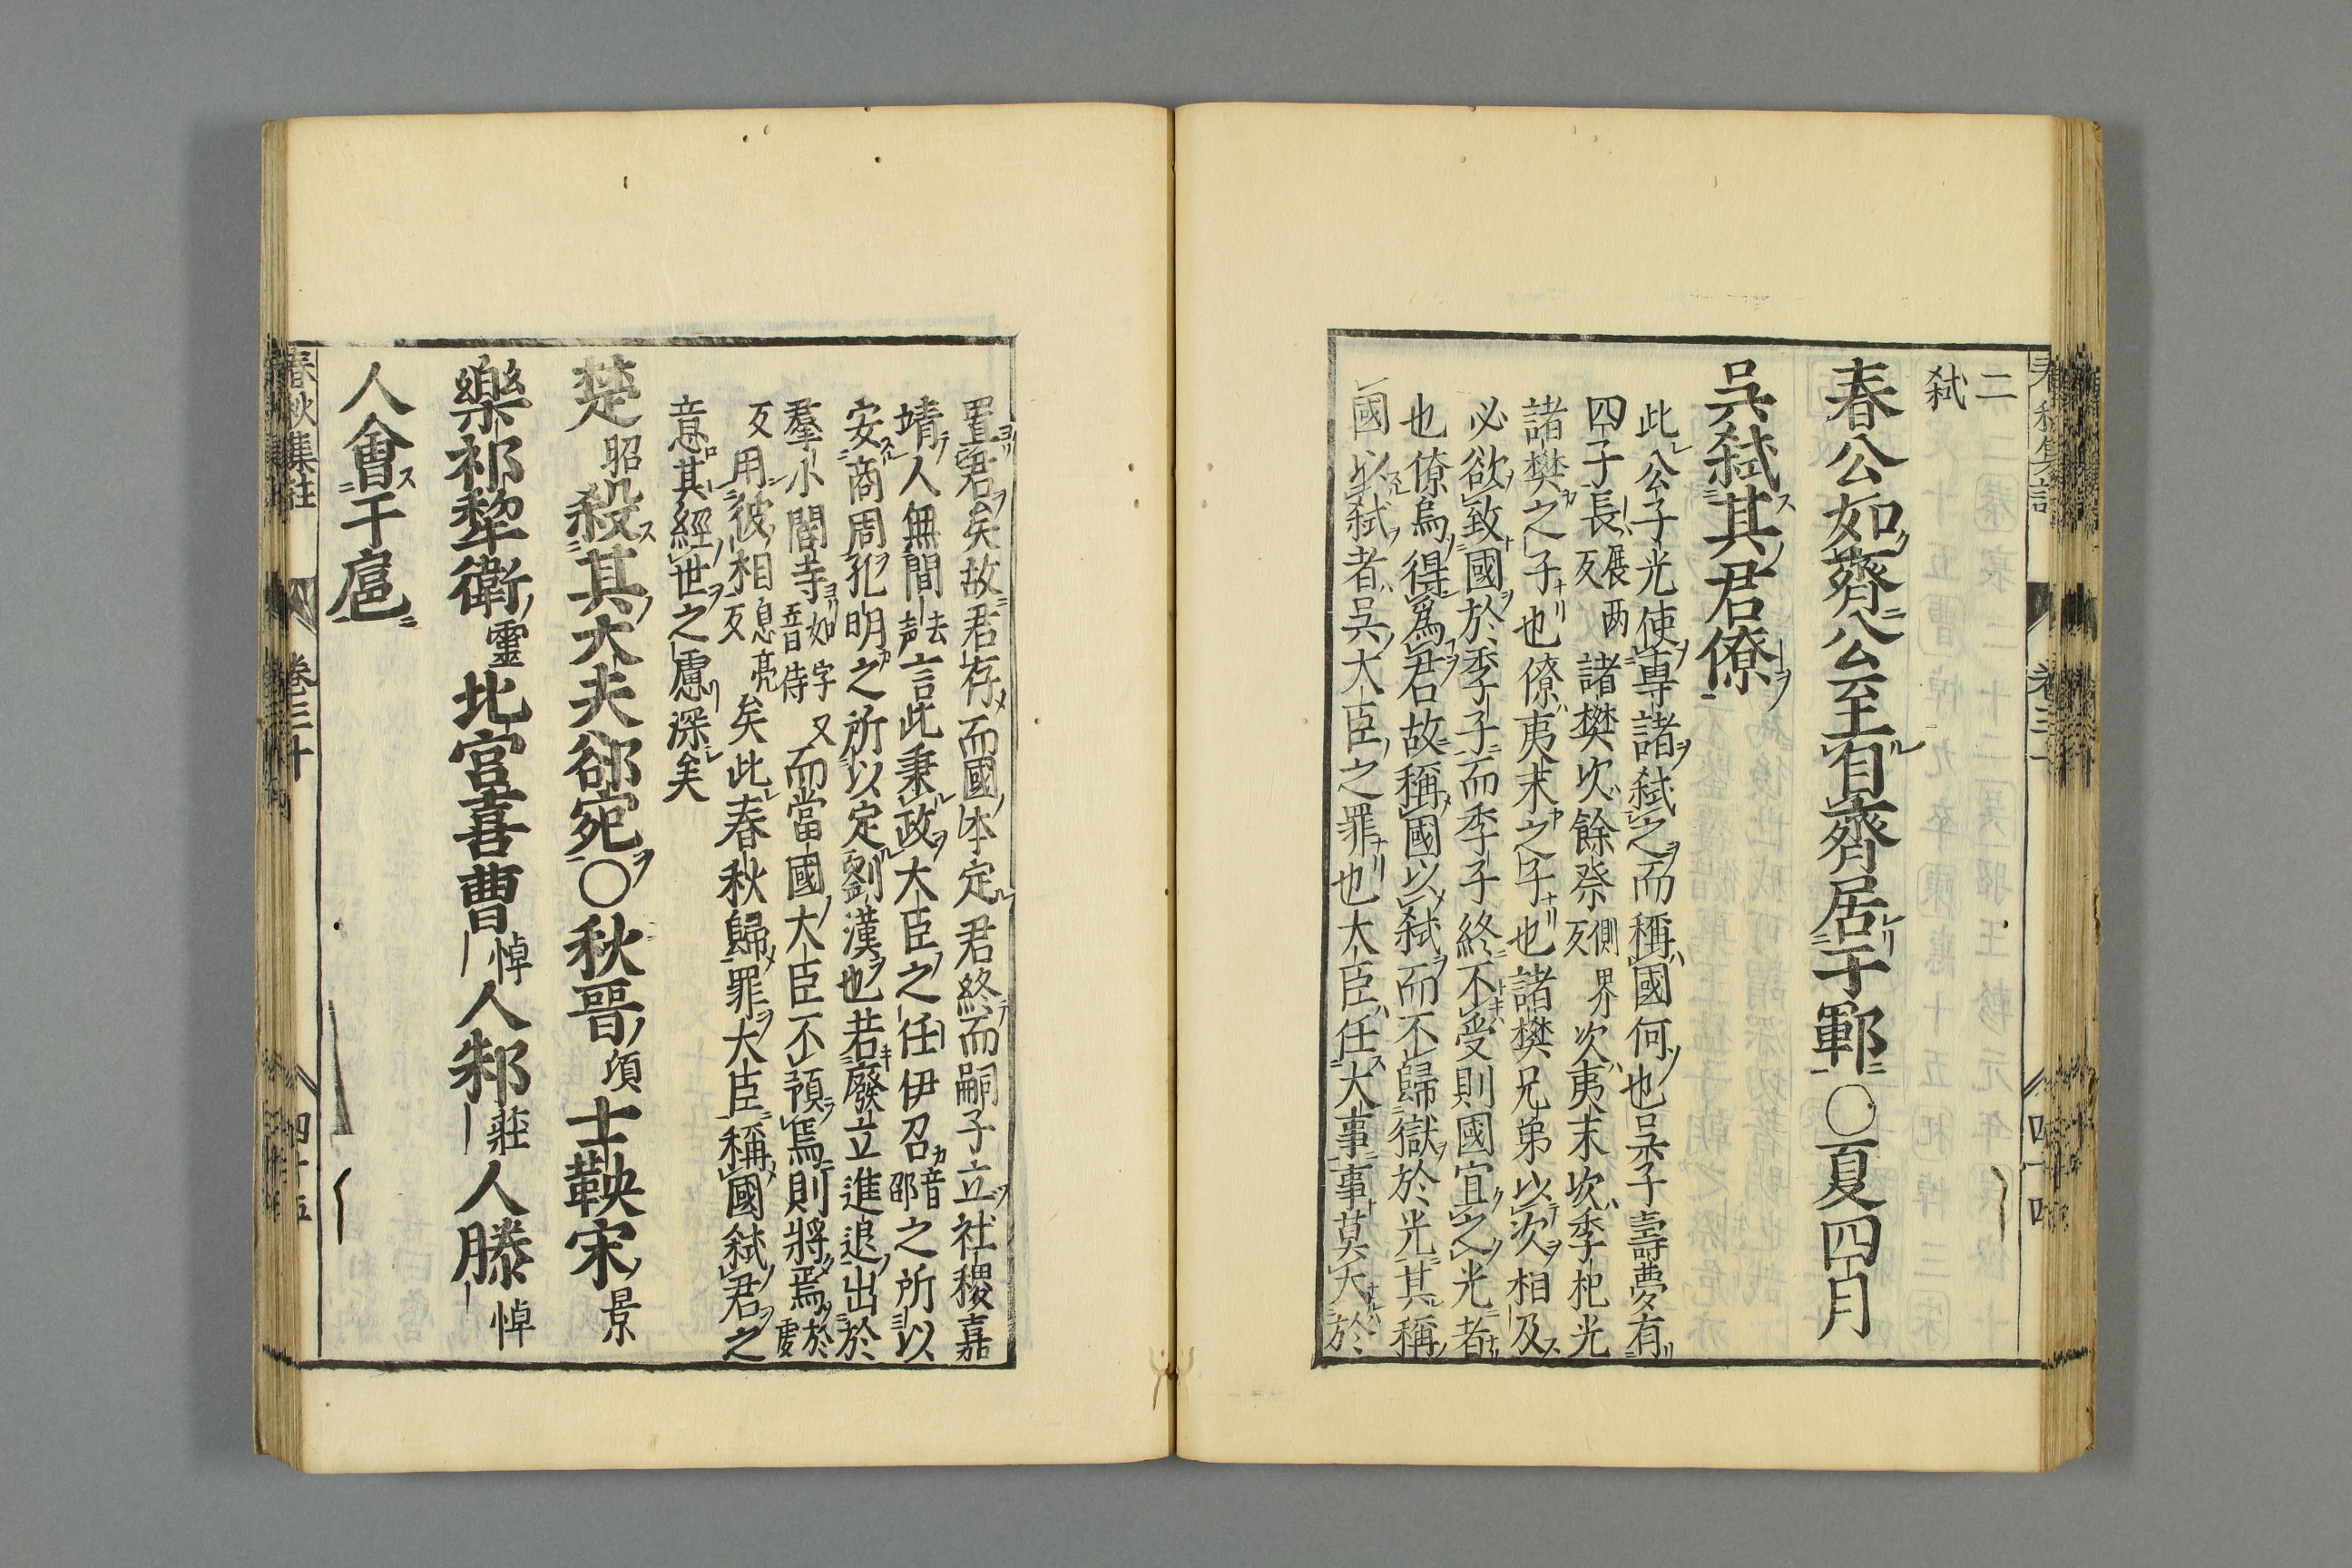 二
弑
春公如齊公至自齊居于鄆○夏四月
吳弑其君僚
此公子光使專諸弑之而稱國何也吳子壽夢有
四子長展兩反諸樊次餘祭側界反次夷末次季札光
諸樊之子也僚夷末之子也諸樊兄弟以次相及
必欲致國於季子而季子終不受則國宜之光者
也僚烏得爲君故稱國以弑而不歸獄於光其稱
國以弑者吳大臣之罪也大臣任大事事莫大於
置君矣故君存而國本定君終而嗣子立社稷嘉
靖人無間去声言此秉政大臣之任伊召音邵之所以
安商周孔明之所以定劉漢也若廢立進退出於
羣小閽寺如字又音侍而當國大臣不預焉則將焉於虔
反用彼相息亮反矣此春秋歸罪大臣稱國弑君之
意其經世之慮深矣
楚昭殺其大夫郤宛○秋晉頃士鞅宋景
樂祁犂衛靈北宮喜曹悼人邾莊人滕悼
人會于扈
春秋集註 卷三十 四十五